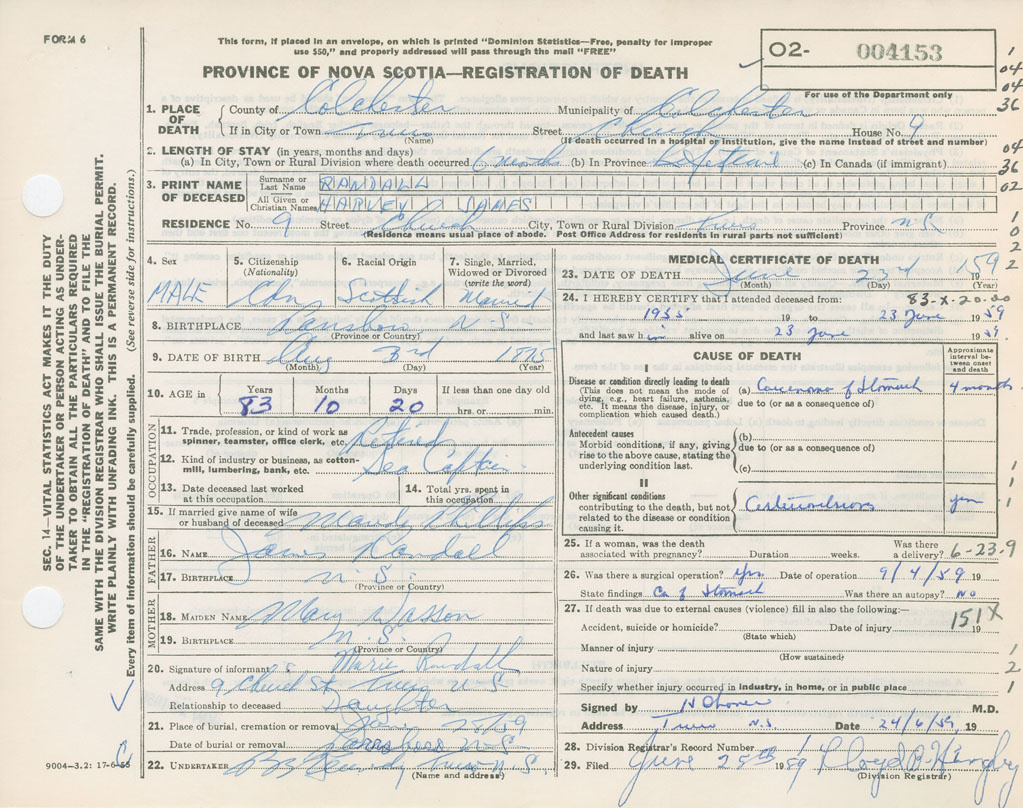 FORM 6
This form, if placed in an envelope, on which is printed "Dominion Statistics—Free, penalty for improper
use $50," and properly addressed will pass through the mail "FREE"
O2- 004153
For use of the Department only
PROVINCE OF NOVA SCOTIA—REGISTRATION OF DEATH
1. PLACE OF DEATH
County of Colchester Municipality of Colchester
If in City or Town Truro Street Church House No. 9
(Name) (If death occurred in a hospital or institution, give the name instead of street and number)
2. LENGTH OF STAY (in years, months and days)
(a) In City, Town or Rural Division where death occurred 6 months (b) In Province (c) In Canada (if immigrant)
3. PRINT NAME OF DECEASED
Surname or Last Name RANDALL
All Given or Christian Names HARVEY JAMES
RESIDENCE No. 9 Street Church City, Town or Rural Division Truro Province N.S.
(Residence means usual place of abode. Post Office Address for residents in rural parts not sufficient)
4. Sex MALE
5. Citizenship (Nationality) Cdn
6. Racial Origin Scottish
7. Single, Married, Widowed or Divorced (write the word) Married
8. BIRTHPLACE N.S.
(Province or Country)
9. DATE OF BIRTH Aug 3rd 1875
(Month) (Day) (Year)
10. AGE in Years 83 Months 10 Days 20 If less than one day old hrs. or min.
OCCUPATION
11. Trade, profession, or kind of work as spinner, teamster, office clerk, etc. Retired
12. Kind of industry or business, as cotton-mill, lumbering, bank, etc. Sea Captain
13. Date deceased last worked at this occupation
14. Total yrs. spent in this occupation
15. If married give name of wife or husband of deceased Phillips
FATHER
16. NAME James Randall
17. BIRTHPLACE N.S.
(Province or Country)
MOTHER
18. MAIDEN NAME Mary Wasson
19. BIRTHPLACE N.S.
(Province or Country)
20. Signature of informant Marie Randall
Address 9 Church St. Truro N.S.
Relationship to deceased Daughter
21. Place of burial, cremation or removal
Date of burial or removal
22. UNDERTAKER Truro N.S.
(Name and address)
MEDICAL CERTIFICATE OF DEATH
23. DATE OF DEATH June 23rd 1959
(Month) (Day) (Year)
24. I HEREBY CERTIFY that I attended deceased from: 83-X-20-20
1955 19 to 23 June 1959
and last saw him alive on 23 June 1959
CAUSE OF DEATH
Approximate interval between onset and death
I
Disease or condition directly leading to death
(This does not mean the mode of dying, e.g., heart failure, asthenia, etc. It means the disease, injury, or complication which caused death.)
(a) Carcinoma of Stomach 4 months
due to (or as a consequence of)
Antecedent causes
Morbid conditions, if any, giving rise to the above cause, stating the underlying condition last.
(b)
due to (or as a consequence of)
(c)
II
Other significant conditions
contributing to the death, but not related to the disease or condition causing it.
25. If a woman, was the death associated with pregnancy? Duration weeks. Was there a delivery? 6-23-9
26. Was there a surgical operation? yes Date of operation 9/4/59 19
State findings Ca of Stomach Was there an autopsy? No
27. If death was due to external causes (violence) fill in also the following:— 151X
Accident, suicide or homicide? Date of injury 19
(State which)
Manner of injury
(How sustained)
Nature of injury
Specify whether injury occurred in industry, in home, or in public place
Signed by M.D.
Address Truro N.S. Date 24/6/59, 19
28. Division Registrar's Record Number
29. Filed June 25th 1959
(Division Registrar)
SEC. 14—VITAL STATISTICS ACT MAKES IT THE DUTY
OF THE UNDERTAKER OR PERSON ACTING AS UNDER-
TAKER TO OBTAIN ALL THE PARTICULARS REQUIRED
IN THE "REGISTRATION OF DEATH" AND TO FILE THE
SAME WITH THE DIVISION REGISTRAR WHO SHALL ISSUE THE BURIAL PERMIT.
WRITE PLAINLY WITH UNFADING INK. THIS IS A PERMANENT RECORD.
Every item of information should be carefully supplied. (See reverse side for instructions.)
9004—3.2: 17-6-55
1
04
04
36
04
36
02
1
0
2
2
1
1
1
1
2
1